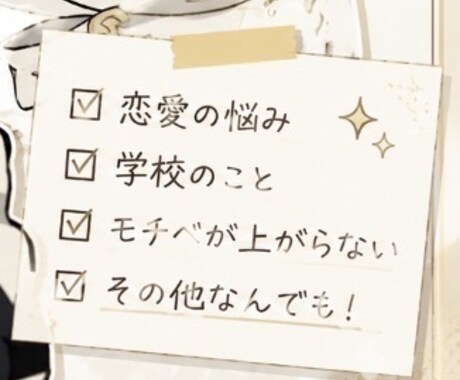 恋愛の悩み
学校のこと
モチベが上がらない
その他なんでも!